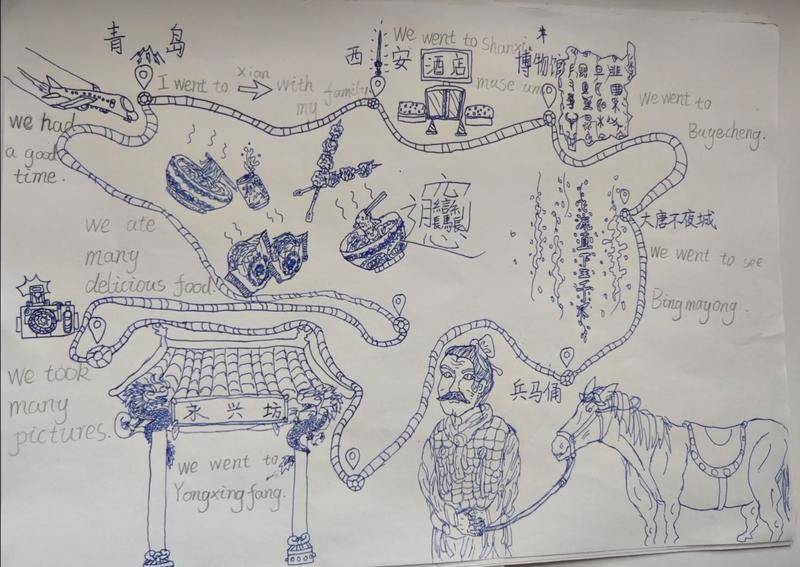 青 岛
西 安
we went to shanxi
museum
酒店
博物馆
I went to Xian with
my family
we had
a good
time.
We went to
Buyecheng.
大唐不夜城
飞流直下三千尺
we ate
many
delicious food.
we went to see
Bingmayong.
兵马俑
we took
many
pictures.
永兴坊
we went to
Yongxingfang.